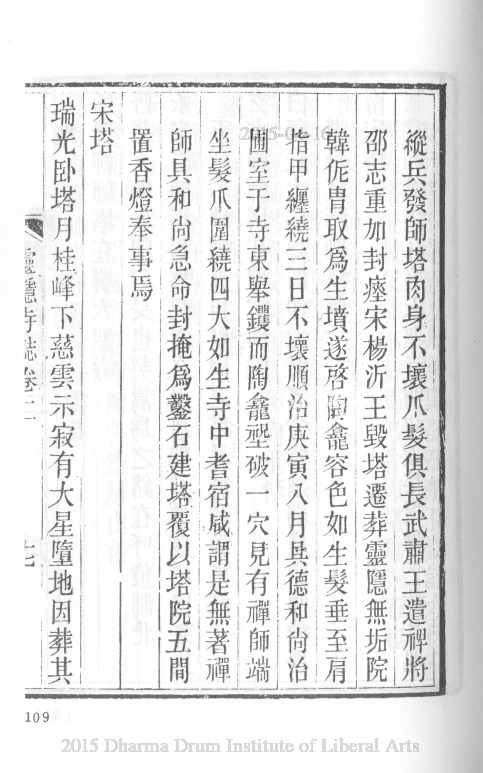 縱兵發師塔肉身不壞爪髮俱長武肅王遣裨將
邵志重加封瘞宋楊沂王毀塔遷葬靈隱無垢院
韓侂冑取爲生墳遂啓陶龕容色如生髮垂至肩
指甲纏繞三日不壞順治庚寅八月具德和尚治
圃室于寺東舉钁而陶龕堲破一穴見有禪師端
坐髮爪圍繞四大如生寺中耆宿咸謂是無著禪
師具和尚急命封掩爲鑿石建塔覆以塔院五間
置香燈奉事焉
宋塔
瑞光卧塔月桂峰下慈雲示寂有大星墮地因葬其
靈隱寺誌卷二
七
109
2015 Dharma Drum Institute of Liberal Arts